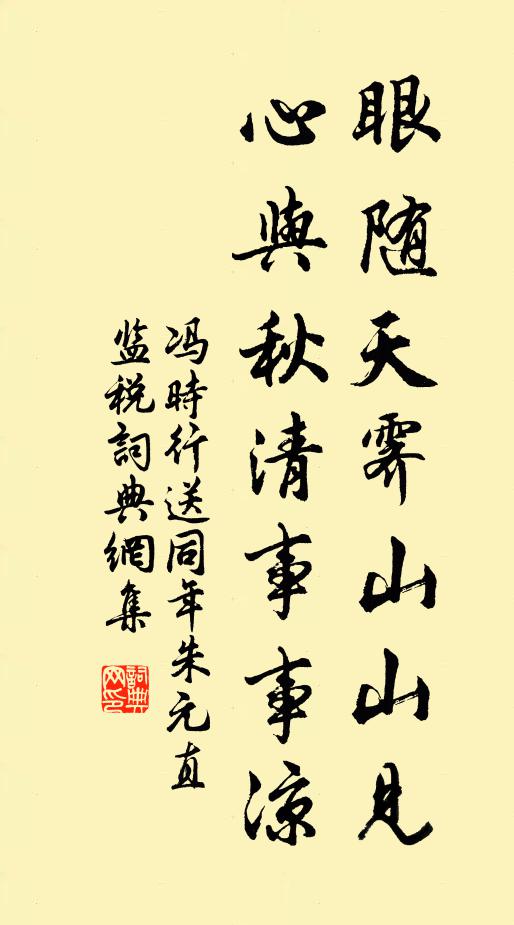 眼随天霁山山见
心與秋清事事凉
冯時行送同年朱元直
监税詞典網集
詞典网印